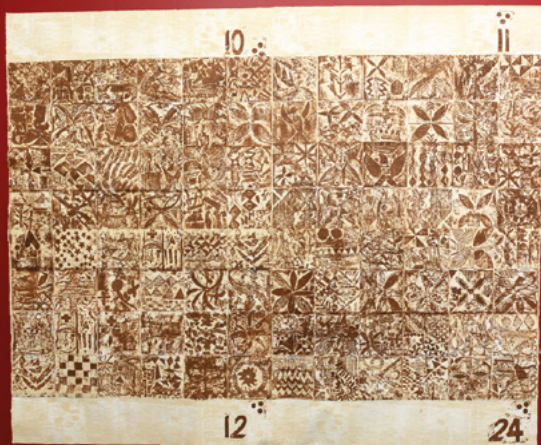 10 11
12 24